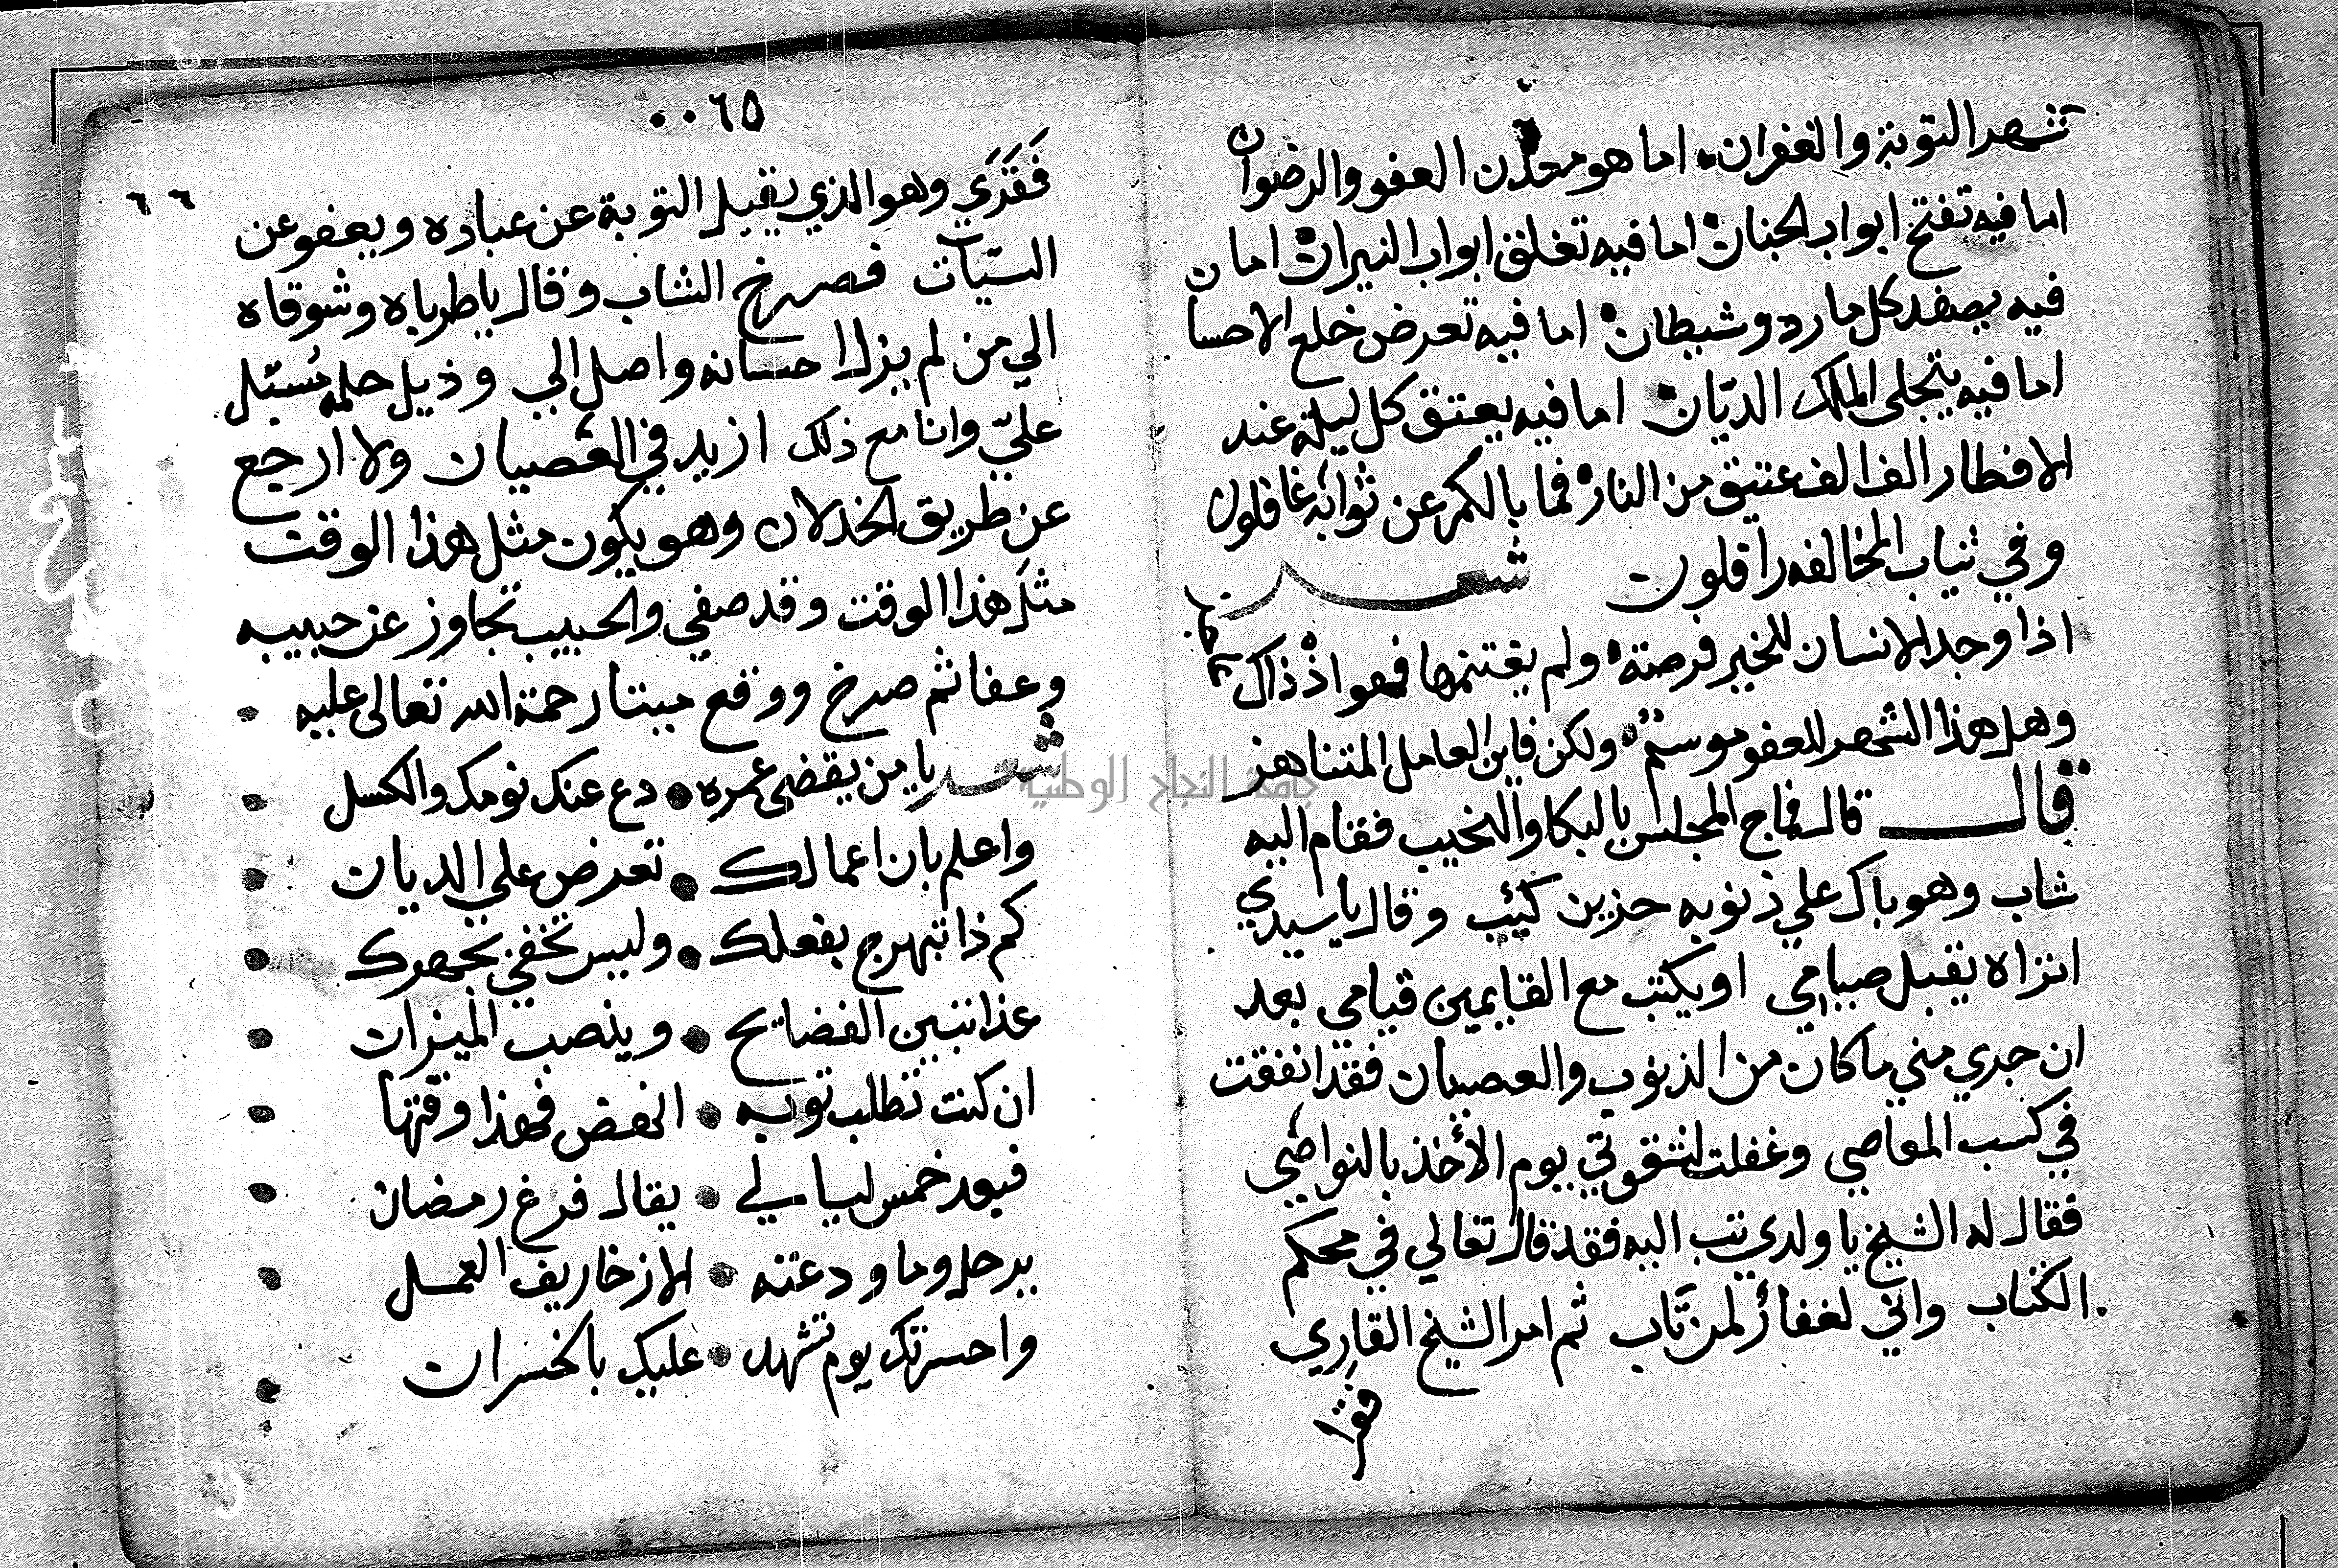 شهر التوبة والغفران اما هو معدن العفو والرضوان
اما فيه تفتح ابواب الجنان اما فيه تغلق ابواب النيران اما
فيه يصفد كل مارد وشيطان اما فيه تعرض خلع الاحسان
اما فيه يتجلى الملك الديّان اما فيه يعتق كل ليلة عند
الافطار الف الف عتيق من النار فما بالكم عن ثوابه غافلون
وفي ثياب المخالفه رافلون شعر
اذا وجد الانسان للخير فرصة ولم يغتنمها فهو اذ ذاك
وهل هذا الشهر للعفو موسم ولكن فاين العامل المتناهز
قال قال فماج المجلس بالبكا والنحيب فقام اليه
شاب وهو باك علي ذنوبه حزين كئيب وقال يا سيدي
اتراه يقبل صيامي او يكتب مع القايمين قيامي بعد
ان جري مني ما كان من الذنوب والعصيان فقد انفقت
في كسب المعاصي وغفلت لشقوتي يوم الأخذ بالنواصي
فقال له الشيخ يا ولدي تب اليه فقد قال تعالي في محكم
الكتاب واني لغفار لمن تاب ثم امر الشيخ القاري
فقرا
٠٠٦٥
٦٦
فَقَرَي وهو الذي يقبل التوبة عن عباده ويعفو عن
السيّات فصرخ الشاب وقال يا طرباه وشوقاه
الي من لم يزل احسانه واصل الي وذيل حلمه مُسبل
عليّ وانا مع ذلك ازيد في العصيان ولا ارجع
عن طريق الخدلان وهو يكون مثل هذا الوقت
مثل هذا الوقت وقد صفي والحبيب تجاوز عن حبيبه
وعفا ثم صرخ ووقع ميتا رحمة الله تعالى عليه
شعر يا من يقضى عمره دع عنك نومك والكسل
واعلم بان اعمالك تعرض علي الديان
كم ذا تبهرج بفعلك وليس تخفي بجهرك
غدا تبين الفضايح وينصب الميزان
ان كنت تطلب توبه انهض فهذا وقتها
فبعد خمس ليالي يقال فرغ رمضان
يرحل وما ودعته الا زخاريف العمل
واحسرتك يوم تشهد عليك بالخسران
جامعة النجاح الوطنية